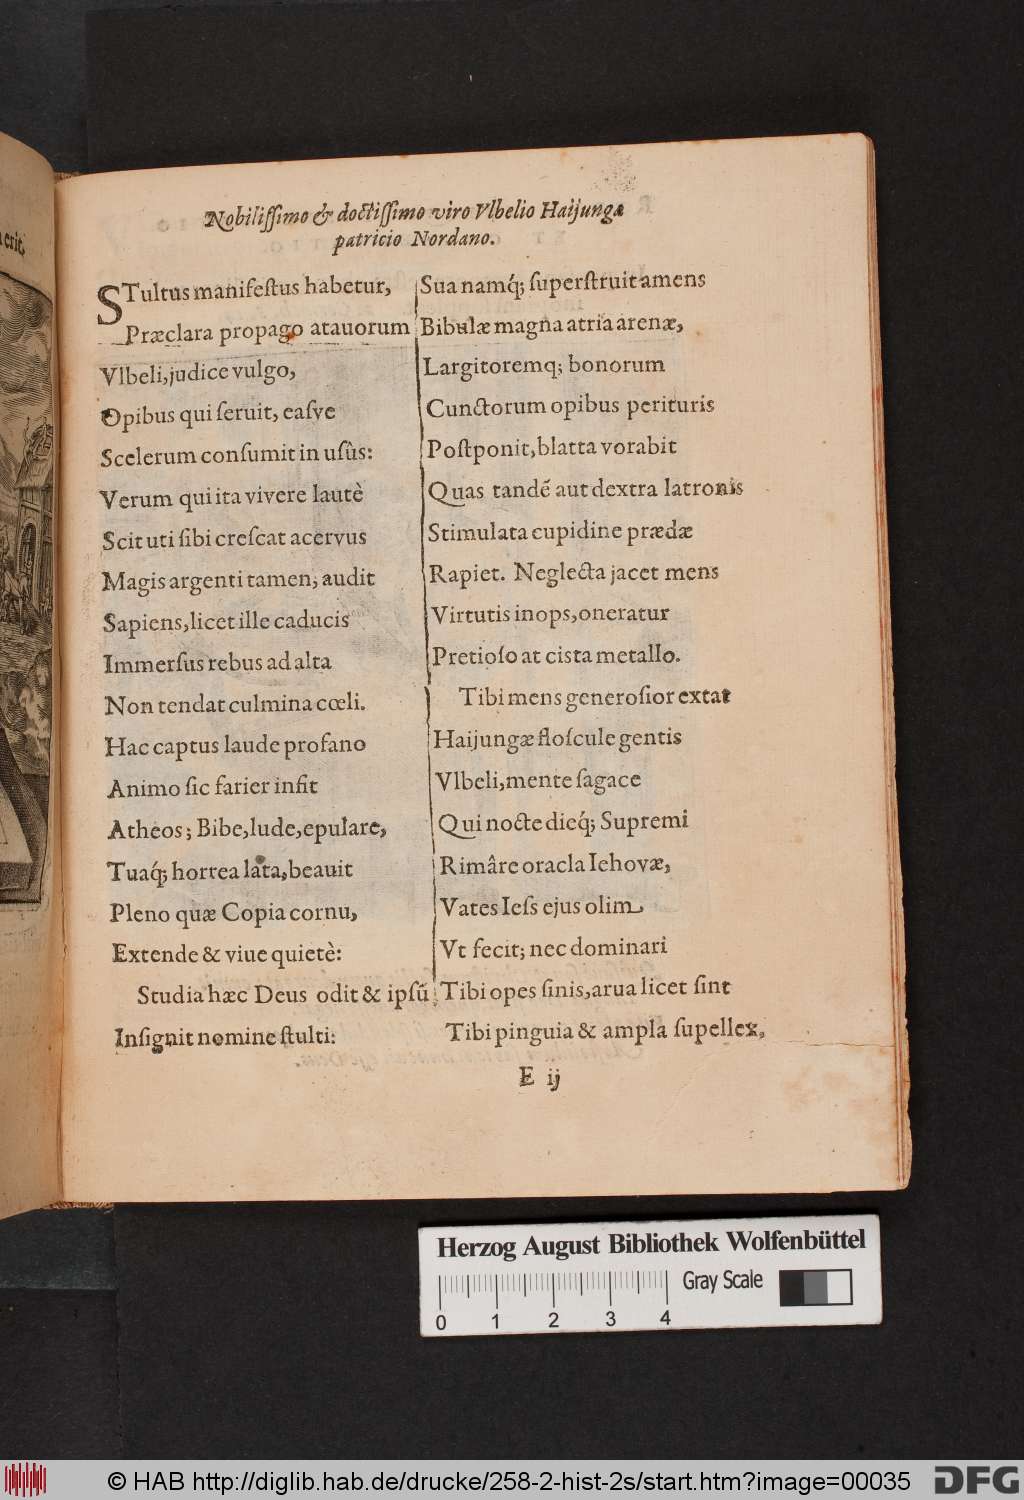 erit.
Nobilissimo & doctissimo viro Vlbelio Haijungæ
patricio Nordano.
STultus manifestus habetur,
Præclara propago atauorum
Vlbeli, judice vulgo,
Opibus qui seruit, easve
Scelerum consumit in usûs:
Verum qui ita vivere lautè
Scit uti sibi crescat acervus
Magis argenti tamen, audit
Sapiens, licet ille caducis
Immersus rebus ad alta
Non tendat culmina cœli.
Hac captus laude profano
Animo sic farier infit
Atheos; Bibe, lude, epulare,
Tuaq́; horrea lata, beauit
Pleno quæ Copia cornu,
Extende & viue quietè:
Studia hæc Deus odit & ipsũ
Insignit nomine stulti:
Sua namq́; superstruit amens
Bibulæ magna atria arenæ,
Largitoremq; bonorum
Cunctorum opibus perituris
Postponit, blatta vorabit
Quas tandẽ aut dextra latronis
Stimulata cupidine prædæ
Rapiet. Neglecta jacet mens
Virtutis inops, oneratur
Pretioso at cista metallo.
Tibi mens generosior extat
Haijungæ floscule gentis
Vlbeli, mente sagace
Qui nocte dieq́; Supremi
Rimâre oracla Iehovæ,
Vates Iess ejus olim
Vt fecit; nec dominari
Tibi opes sinis, arua licet sint
Tibi pinguia & ampla supellex,
E ij
Herzog August Bibliothek Wolfenbüttel
Gray Scale
0 1 2 3 4
© HAB http://diglib.hab.de/drucke/258-2-hist-2s/start.htm?image=00035
DFG